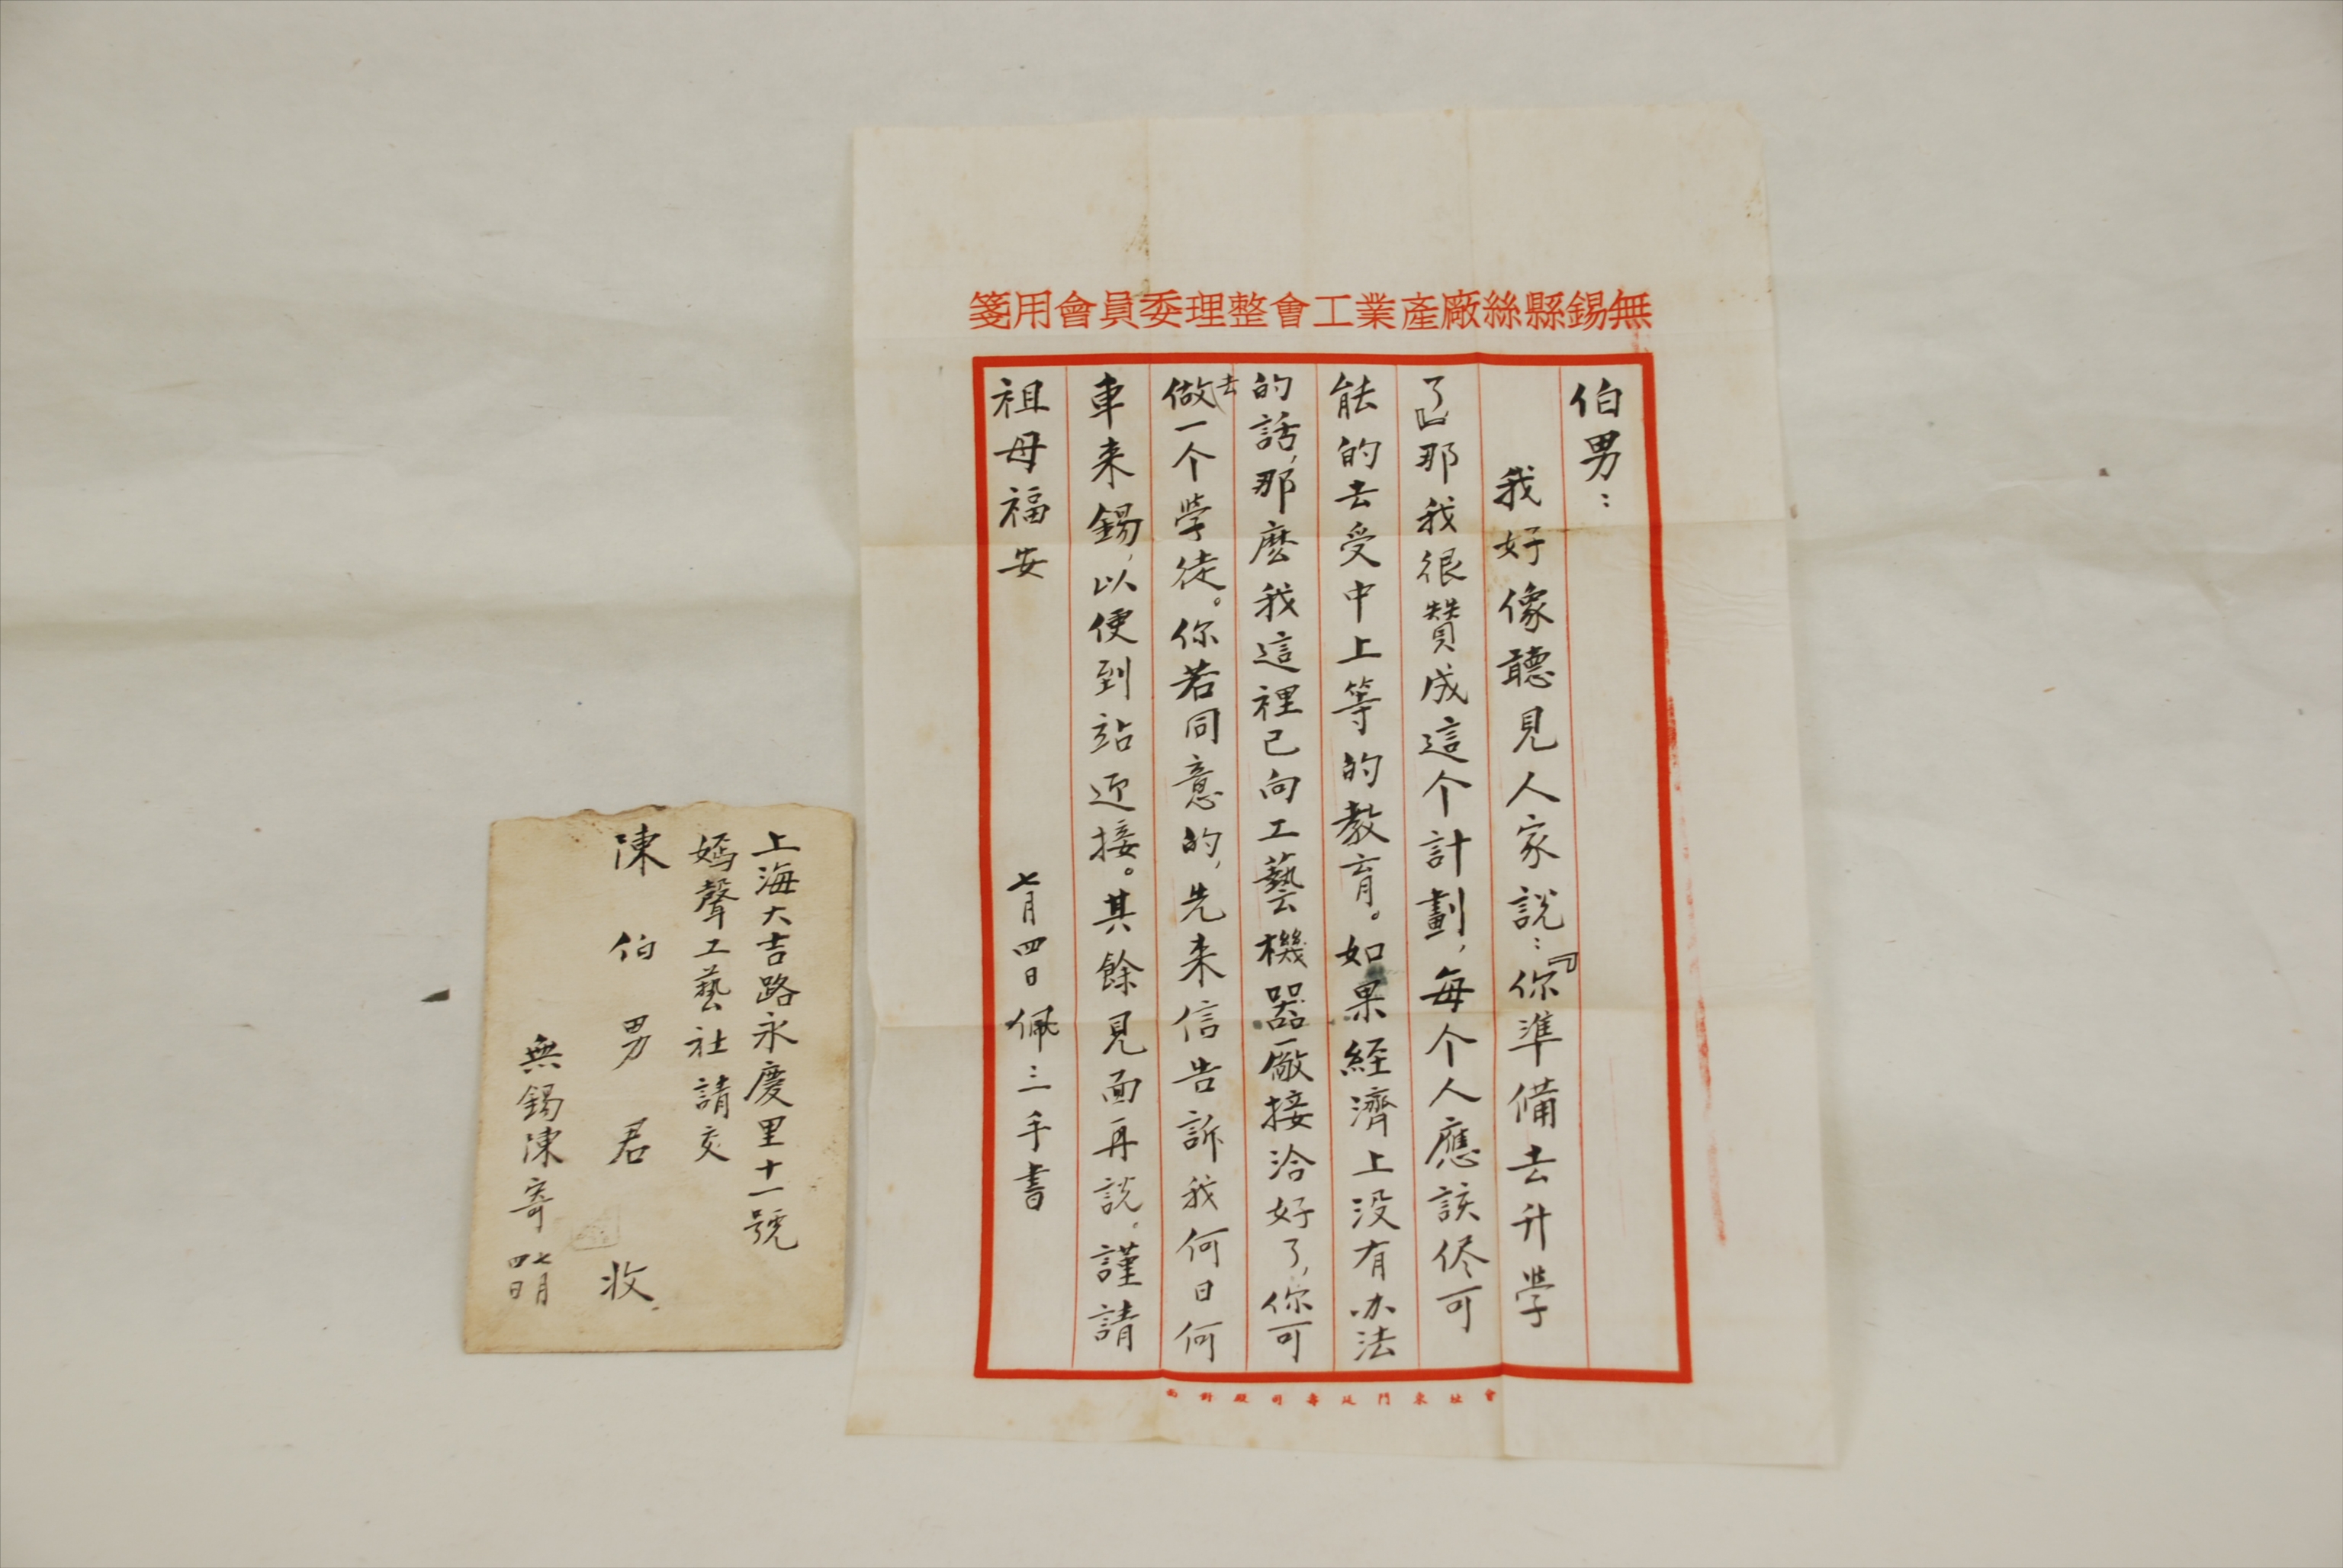 無錫縣絲廠產業工會整理委員會用箋
伯男：
我好像聽見人家說：『你準備去升學
了』那我很贊成這个計劃，每个人應該侭可
能的去受中上等的教育。如果経濟上没有办法
的話，那麽我這裡已向工藝機器廠接洽好了，你可
去做一个學徒。你若同意的，先来信告訴我何日何
車来錫，以便到站迎接。其餘見面再說。謹請
祖母福安
七月四日佩三手書
會址東門延壽司殿對面
上海大吉路永慶里十一號
嫣聲工藝社請交
陳伯男君收
無錫陳寄 七月四日